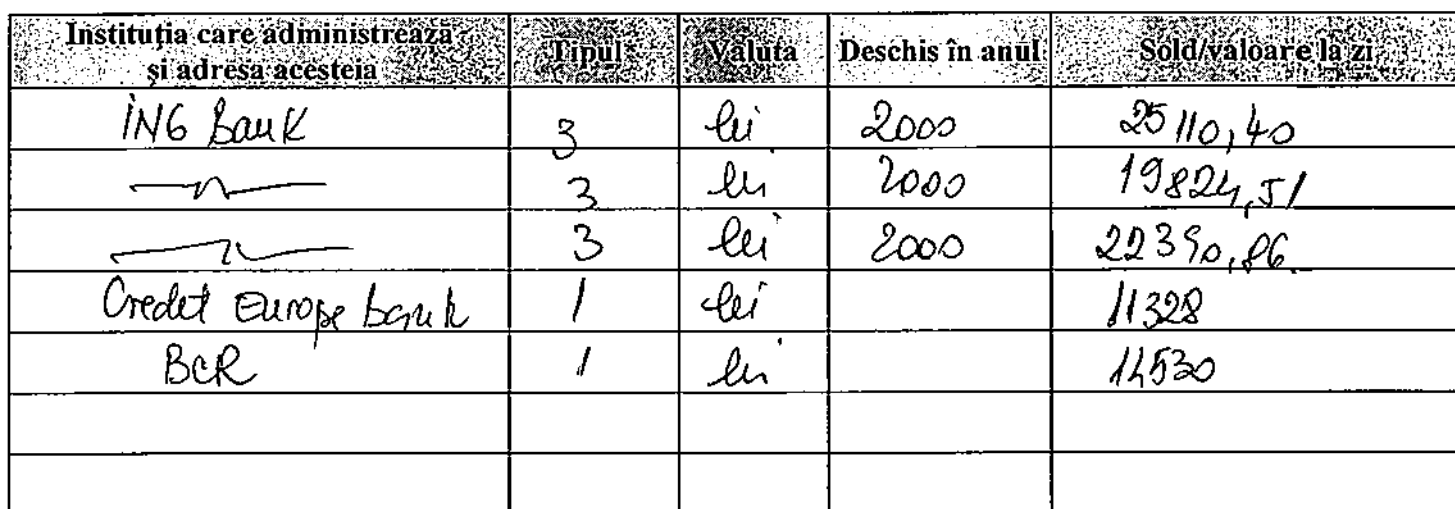 Instituția care administrează și adresa acesteia | Tipul* | Valuta | Deschis în anul | Sold/valoare la zi
ING Bank | 3 | lei | 2000 | 25110,40
3 | lei | 2000 | 19824,51
3 | lei | 2000
Credit Europe bank | 1 | lei | 11328
BCR | 1 | lei